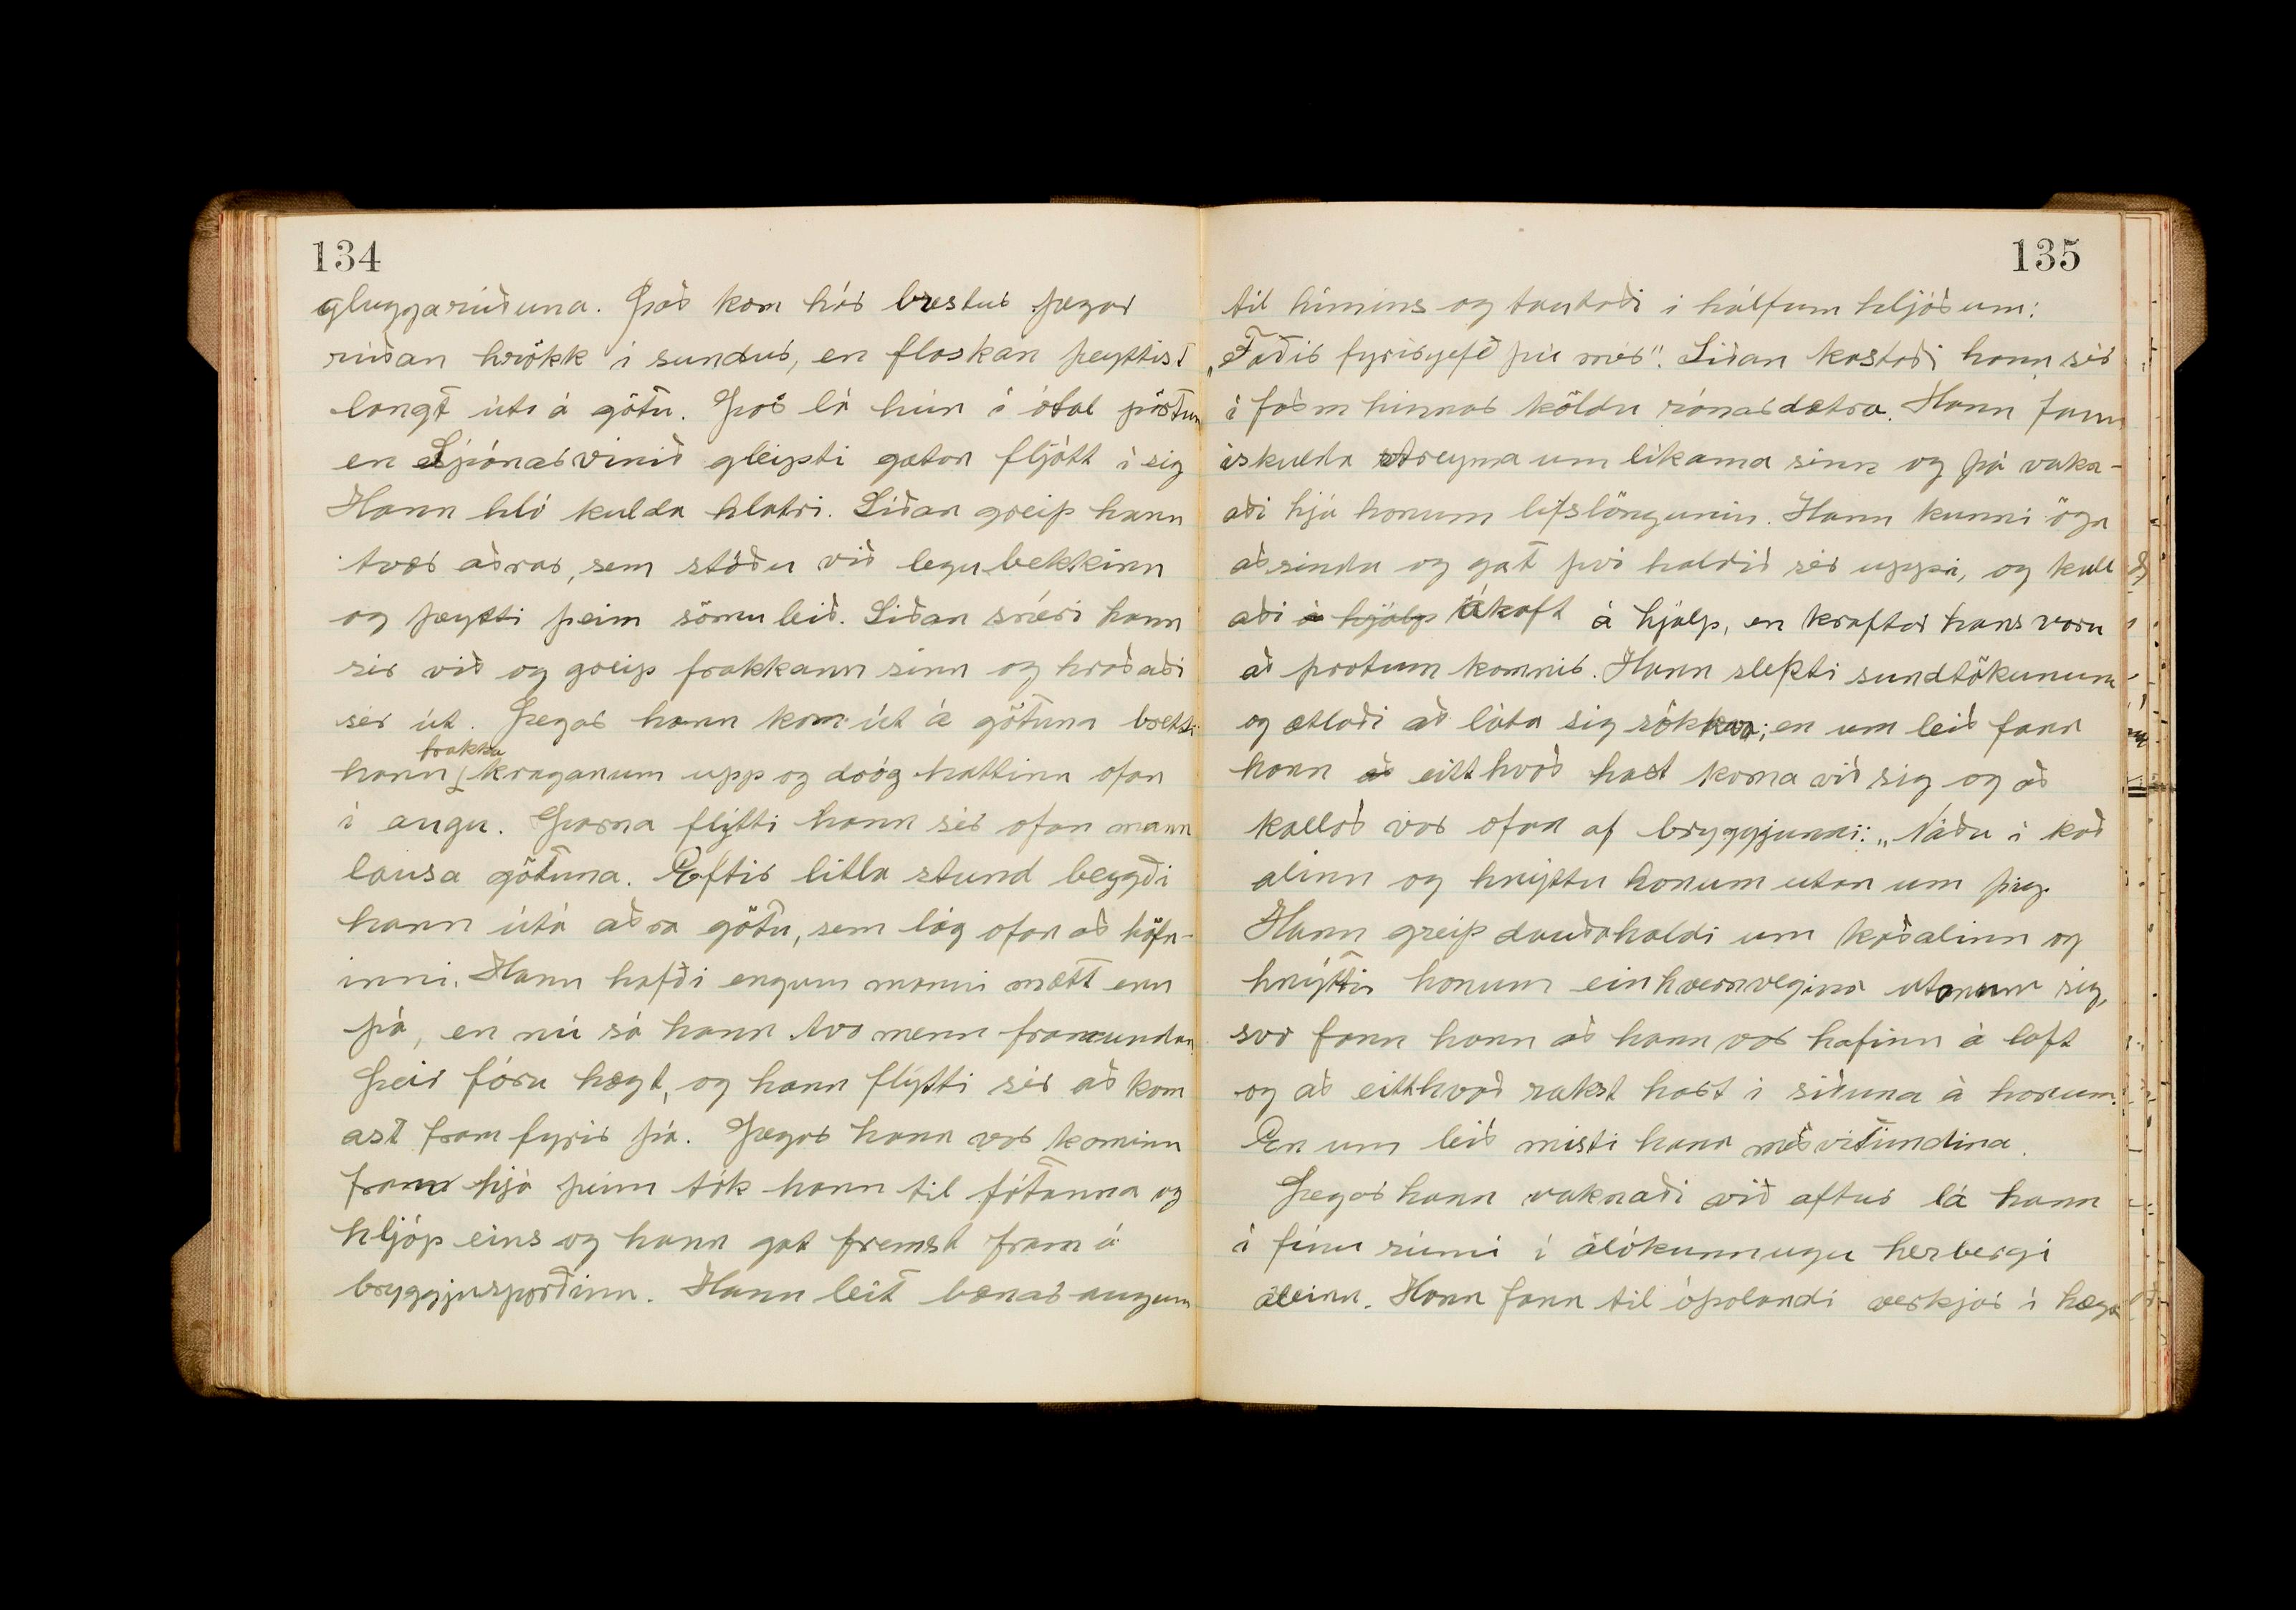 134
gluggarúðuna. Það kom hár brestur þegar
rúðan hrökk í sundur, en flaskan þeyttist
langt úti á götu. Þar lá hún í ótal pörtum
en Spánarvínið gleypti gatan fljótt í sig
Hann hló kulda hlátri. Síðan greip hann
tvær aðrar, sem stóðu við legubekkinn
og þeytti þeim sömu leið. Síðan snéri hann
sér við og greip frakkann sinn og hraðaði
sér út. Þegar hann kom út á götuna bretti
frakka
hann kraganum upp og dróg hattinn ofan
í augu. Þarna flýtti hann sér ofan mann
lausa götuna. Eftir litla stund beygði
hann útá aðra götu, sem lág ofan að höfn-
inni. Hann hafði engum manni mætt enn
þá, en nú sá hann tvo menn framundan.
Þeir fóru hægt, og hann flýtti sér að kom
ast fram fyrir þá. Þegar hann var kominn
fram hjá þeim tók hann til fótanna og
hljóp eins og hann gat fremst fram á
bryggjusporðinn. Hann leit bænar augum
135
til himins og tautaði í hálfum hljóðum:
„Faðir fyrirgefð þú mér". Síðan kastaði hann sér
í faðm hinnar köldu ránardætra. Hann fann
ískulda streyma um líkama sinn og þá vakn-
aði hjá honum lífslöngunin. Hann kunni öga
að sinda og gat því haldið sér uppi, og kall
aði á hjálp ákaft á hjálp, en kraftar hans voru
að þrotum komnir. Hann slepti sundtökunum
og ætlaði að láta sig sökkva; en um leið fann
hann að eitthvað hart koma við sig og að
kallað var ofan af bryggjunni: „Náðu í kað
alinn og hnýttu honum utan um þig.
Hann greip dauðahaldi um kaðalinn og
hnýtti honum einhvernveginn utanum sig,
svo fann hann að hann var hafinn á loft
og að eitthvað rakst hart í síðuna á honum.
En um leið misti hann meðvitundina.
Þegar hann vaknaði við aftur lá hann
í fínu rúmi í álókunnugu herbergi
áleinn. Hann fann til óþolandi verkjar í hægr